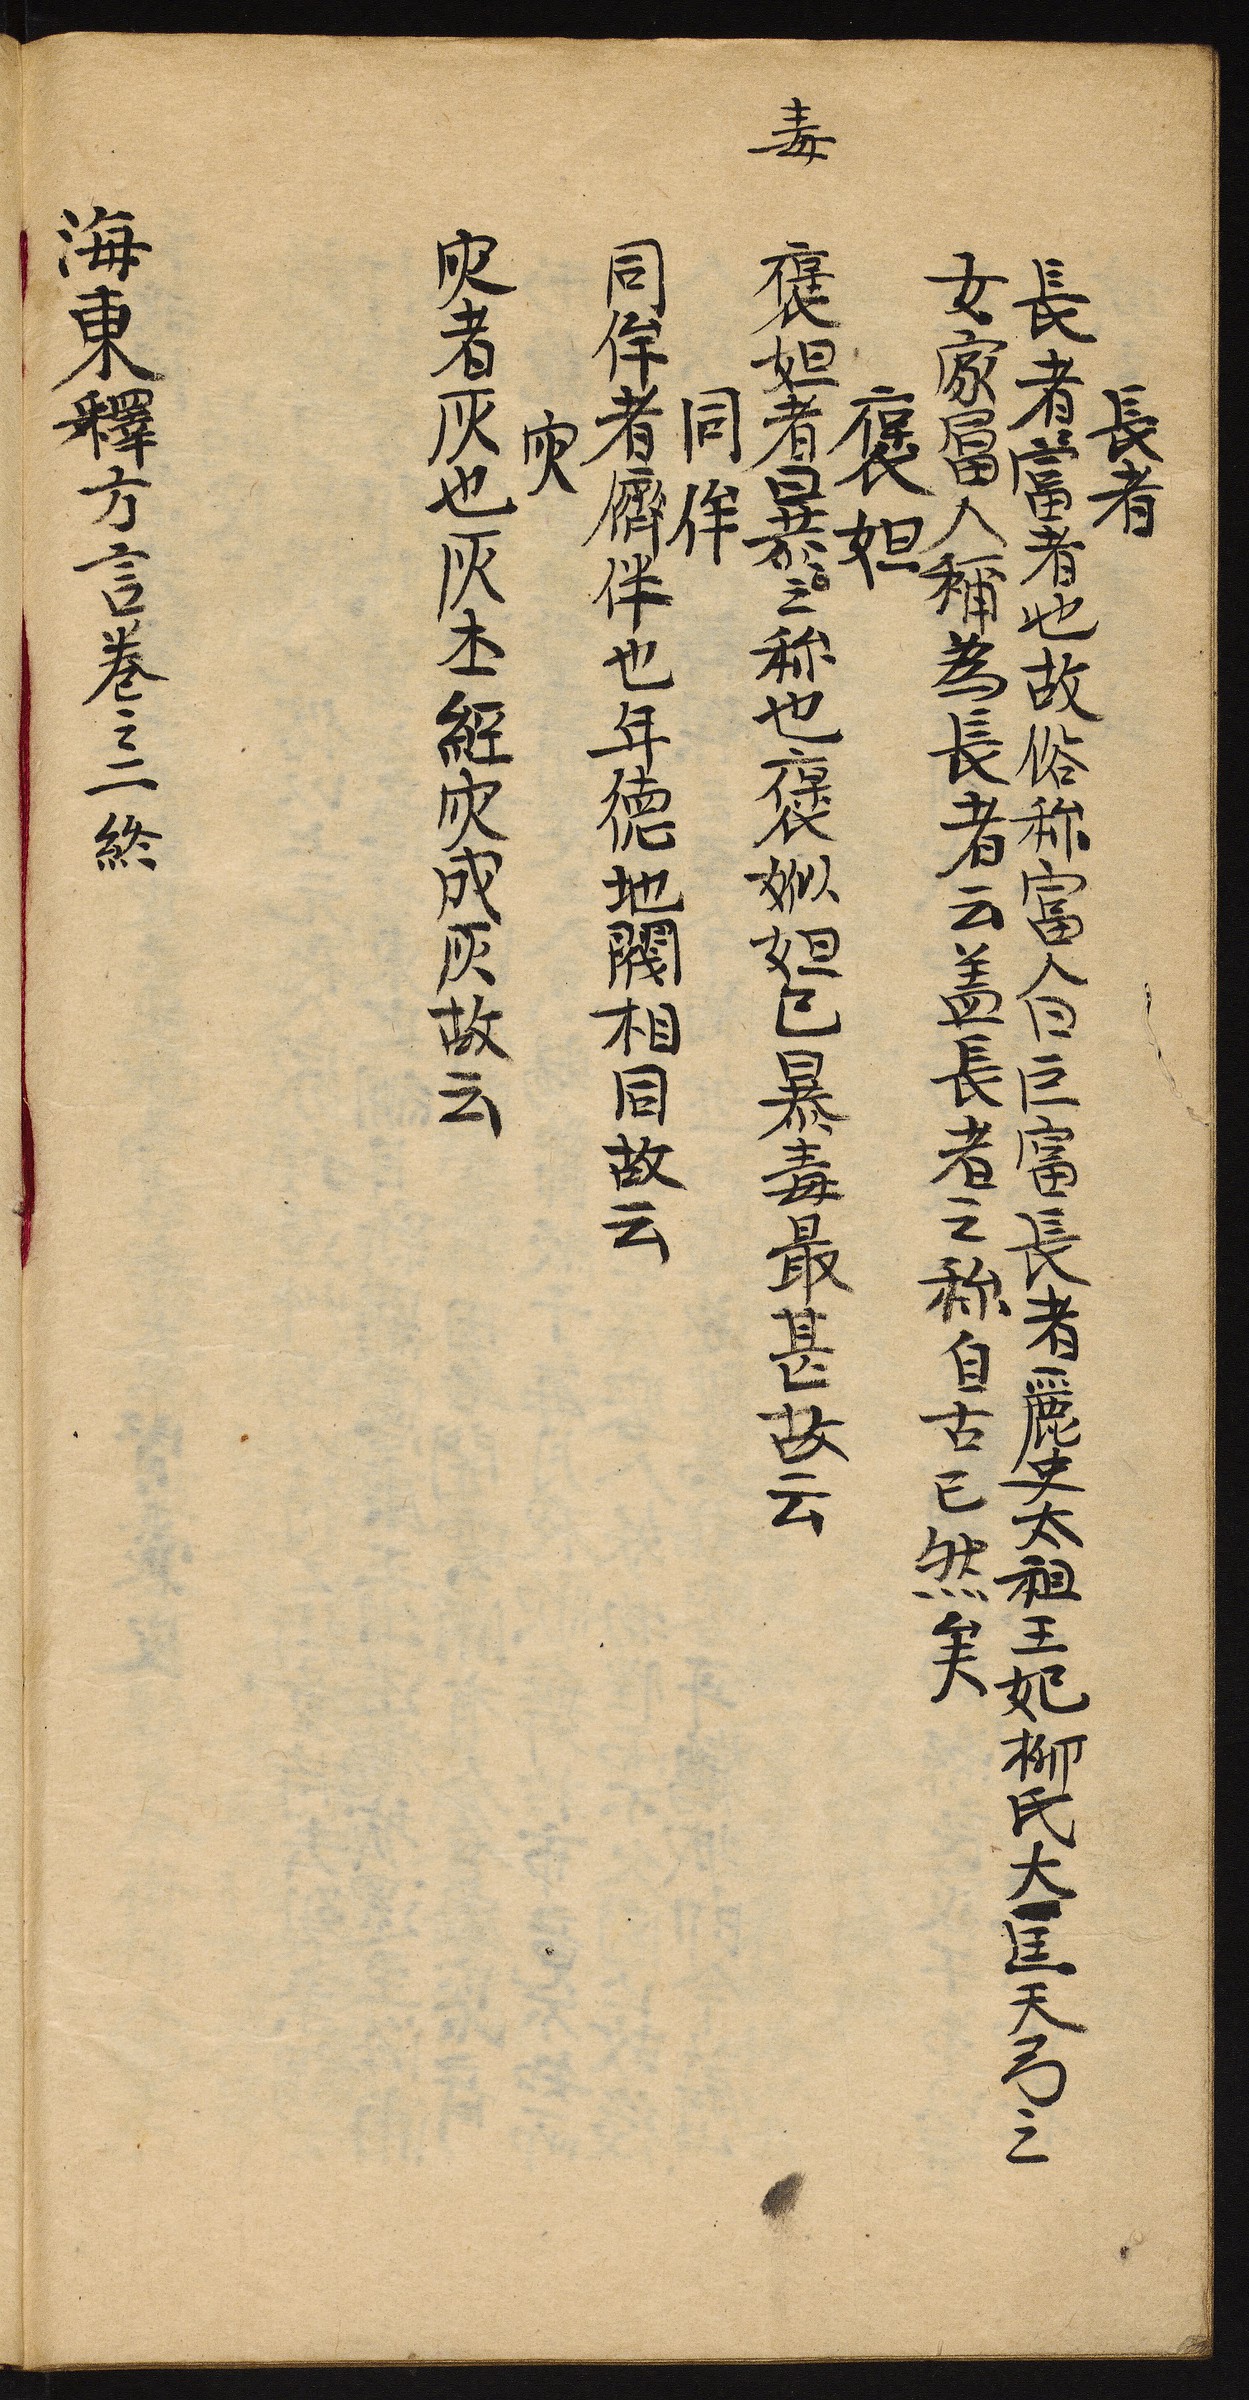 長者
長者富者也故俗称富人曰巨富長者麗史太祖王妃柳氏大匡天弓之
女家冨人稱為長者云盖長者之称自古已然矣
褒妲
毒
褒妲者暴之称也褒姒妲己暴毒最甚故云
同侔
同侔者儕伴也年德地閥相同故云
灾
灾者灰也灰土經灾成灰故云
海東釋方言卷之二終